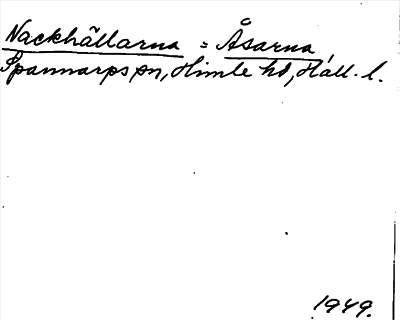 Nackhällarna = Åsarna,
Spannarps sn, Himle hd, Hall. l.
1949.